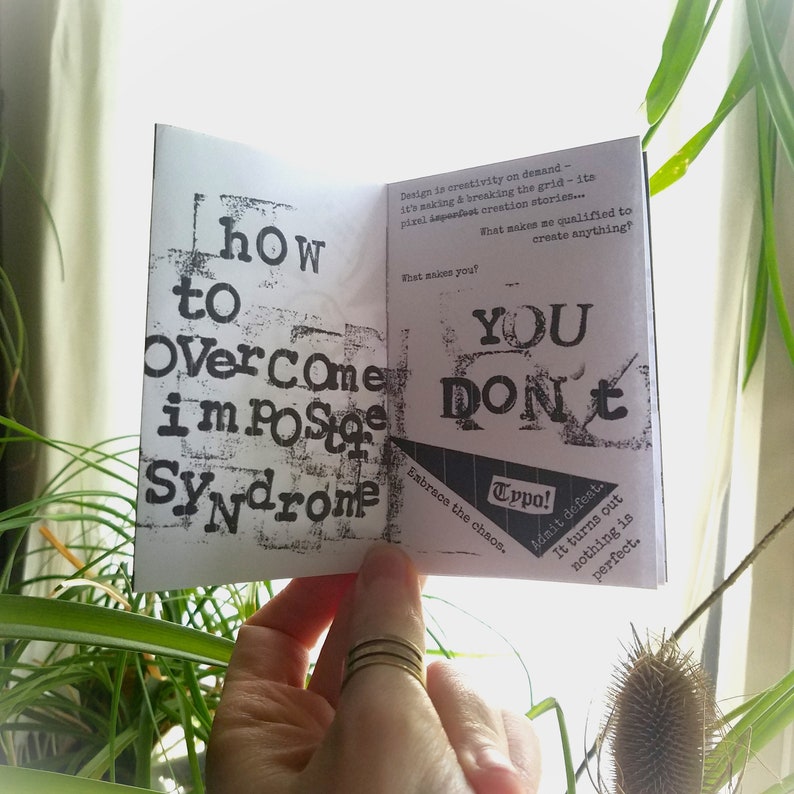 hOW
to
OVerCOme
imPOStoer
SyNdrome
Design is creativity on demand –
it's making & breaking the grid – its
pixel imperfect creation stories...
What makes me qualified to
create anything?
What makes you?
YOU
DON't
Typo!
Embrace the chaos.
Admit defeat.
It turns out
nothing is
perfect.